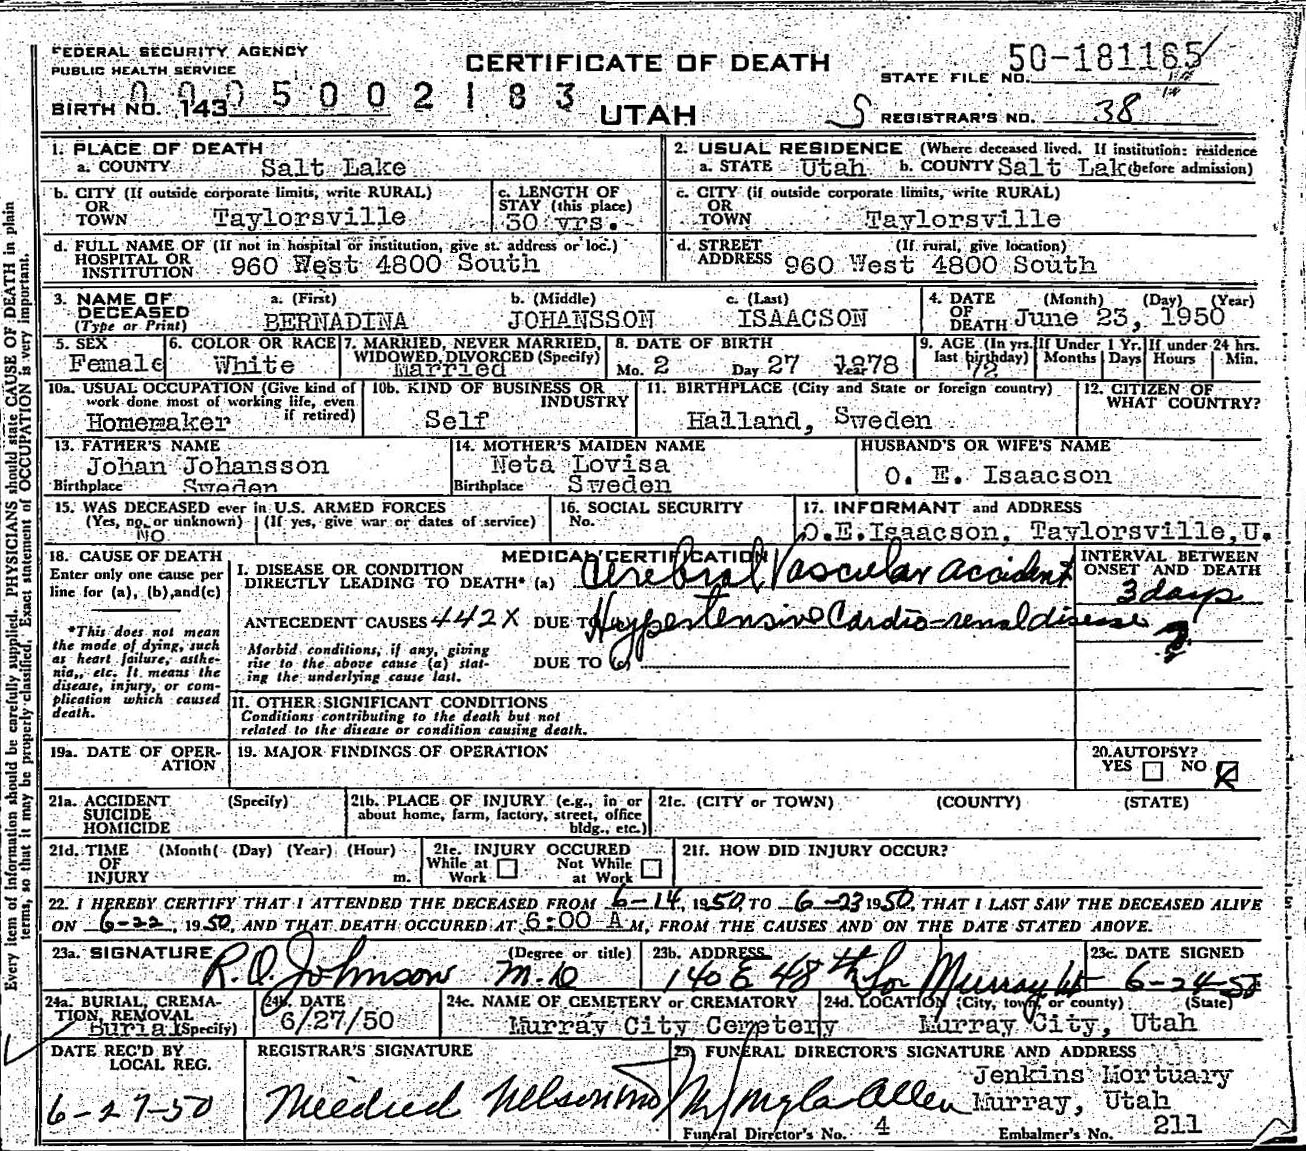 FEDERAL SECURITY AGENCY
PUBLIC HEALTH SERVICE
CERTIFICATE OF DEATH
UTAH
50-181165
STATE FILE NO.
BIRTH NO. 143
005002183
S REGISTRAR'S NO. 38
1. PLACE OF DEATH
a. COUNTY Salt Lake
2. USUAL RESIDENCE (Where deceased lived. If institution: residence
a. STATE Utah b. COUNTY Salt Lake before admission)
b. CITY (If outside corporate limits, write RURAL)
OR
TOWN Taylorsville
c. LENGTH OF
STAY (this place)
30 yrs.
c. CITY (if outside corporate limits, write RURAL)
OR
TOWN Taylorsville
d. FULL NAME OF (If not in hospital or institution, give st. address or loc.)
HOSPITAL OR
INSTITUTION 960 West 4800 South
d. STREET (If rural, give location)
ADDRESS 960 West 4800 South
3. NAME OF
DECEASED
(Type or Print)
a. (First) b. (Middle) c. (Last)
BERNADINA JOHANSSON ISAACSON
4. DATE (Month) (Day) (Year)
OF
DEATH June 23, 1950
5. SEX
Female
6. COLOR OR RACE
White
7. MARRIED, NEVER MARRIED,
WIDOWED, DIVORCED (Specify)
Married
8. DATE OF BIRTH
Mo. 2 Day 27 Year 1878
9. AGE (In yrs. If Under 1 Yr. If under 24 hrs.
last birthday) Months Days Hours Min.
72
10a. USUAL OCCUPATION (Give kind of
work done most of working life, even
if retired)
Homemaker
10b. KIND OF BUSINESS OR
INDUSTRY
Self
11. BIRTHPLACE (City and State or foreign country)
Halland, Sweden
12. CITIZEN OF
WHAT COUNTRY?
13. FATHER'S NAME
Johan Johansson
Birthplace Sweden
14. MOTHER'S MAIDEN NAME
Neta Lovisa
Birthplace Sweden
HUSBAND'S OR WIFE'S NAME
O. E. Isaacson
15. WAS DECEASED ever in U.S. ARMED FORCES
(Yes, no, or unknown) (If yes, give war or dates of service)
No
16. SOCIAL SECURITY
No.
17. INFORMANT and ADDRESS
O.E.Isaacson, Taylorsville,U.
18. CAUSE OF DEATH
Enter only one cause per
line for (a), (b),and(c)
*This does not mean
the mode of dying, such
as heart failure, asthe-
nia,, etc. It means the
disease, injury, or com-
plication which caused
death.
MEDICAL CERTIFICATION
I. DISEASE OR CONDITION
DIRECTLY LEADING TO DEATH* (a) Cerebral Vascular accident
ANTECEDENT CAUSES 442X DUE TO Hypertensive Cardio-renal disease
Morbid conditions, if any, giving
rise to the above cause (a) stat-
ing the underlying cause last.
DUE TO (c)
INTERVAL BETWEEN
ONSET AND DEATH
3 days
?
II. OTHER SIGNIFICANT CONDITIONS
Conditions contributing to the death but not
related to the disease or condition causing death.
19a. DATE OF OPER-
ATION
19. MAJOR FINDINGS OF OPERATION
20. AUTOPSY?
YES NO X
21a. ACCIDENT (Specify)
SUICIDE
HOMICIDE
21b. PLACE OF INJURY (e.g., in or
about home, farm, factory, street, office
bldg., etc.)
21c. (CITY or TOWN) (COUNTY) (STATE)
21d. TIME (Month( (Day) (Year) (Hour)
OF
INJURY m.
21e. INJURY OCCURED
While at Not While
Work at Work
21f. HOW DID INJURY OCCUR?
22. I HEREBY CERTIFY THAT I ATTENDED THE DECEASED FROM 6-14, 1950, TO 6-23 1950, THAT I LAST SAW THE DECEASED ALIVE
ON 6-22, 1950, AND THAT DEATH OCCURED AT 6:00 A M, FROM THE CAUSES AND ON THE DATE STATED ABOVE.
23a. SIGNATURE (Degree or title)
R.O. Johnson M.D
23b. ADDRESS
140 E 48th So Murray Ut
23c. DATE SIGNED
6-24-50
24a. BURIAL, CREMA-
TION, REMOVAL
Burial (Specify)
24b. DATE
6/27/50
24c. NAME OF CEMETERY or CREMATORY
Murray City Cemetery
24d. LOCATION (City, town, or county) (State)
Murray City, Utah
DATE REC'D BY
LOCAL REG.
6-27-50
REGISTRAR'S SIGNATURE
Nelson
25. FUNERAL DIRECTOR'S SIGNATURE AND ADDRESS
Jenkins Mortuary
Allen Murray, Utah
Funeral Director's No. 4 Embalmer's No. 211
Every item of information should be carefully supplied. PHYSICIANS should state CAUSE OF DEATH in plain
terms, so that it may be properly classified. Exact statement of OCCUPATION is very important.